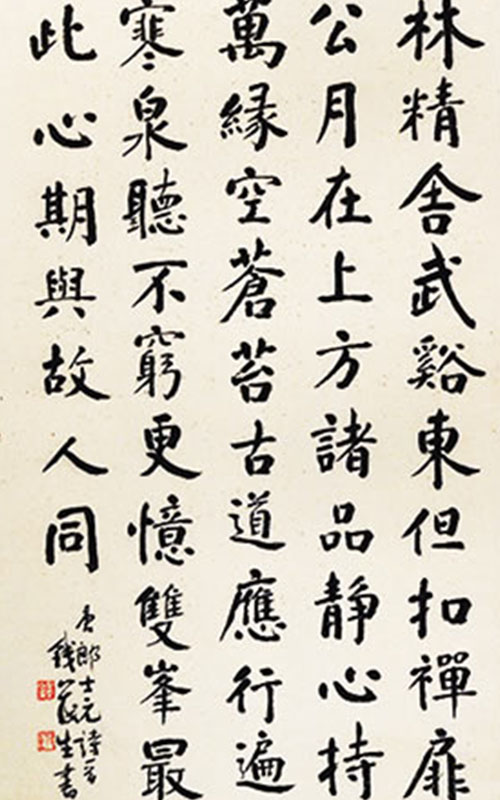 林精舍武谿東但扣禪扉
公月在上方諸品靜心持
萬緣空蒼苔古道應行遍
寒泉聽不窮更憶雙峯最
此心期與故人同
唐郎士元詩
錢生書